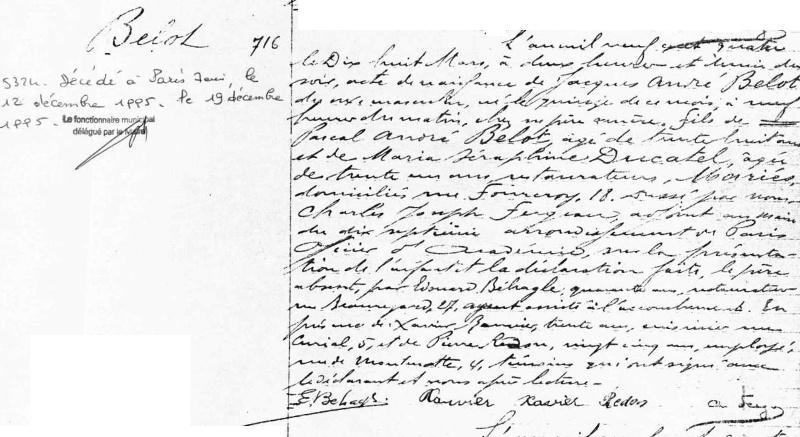 Belot 716
5324. Décédé à Paris 7ème, le
12 décembre 1995. le 19 décembre
1995.
Le fonctionnaire municipal
délégué par le
L'an mil neuf cent quatre
le Dix huit Mars, à deux heures et demie du
soir, acte de naissance de Jacques André Belot
du sexe masculin, né le quinze de ce mois, à neuf
heures du matin, chez ses père et mère, fils de
Pascal André Belot, âgé de trente huit ans
et de Maria Séraphine Ducatel, âgée
de trente un ans, restaurateurs, Mariés,
domiciliés rue Fourcroy, 18. Dressé par nous,
Charles Joseph adjoint au maire
du dix septième arrondissement de Paris
Officier d'Académie, sur la présenta-
tion de l'enfant et la déclaration faite, le père
absent, par Edouard Béhagle, quarante ans, restaurateur
rue Beauregard, 27, ayant assisté à l'accouchement. En
présence de: Xavier trente ans, cuisinier rue
Curial, 5, et de Pierre vingt cinq ans, employé,
rue de 4, témoins qui ont signé avec
le déclarant et nous après lecture.-
E. Béhagle. Xavier